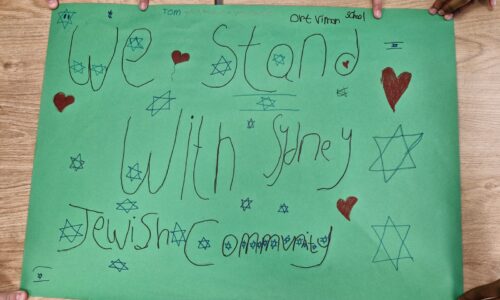 TOM Ort Viman School
We Stand
With Sydney
Jewish Community